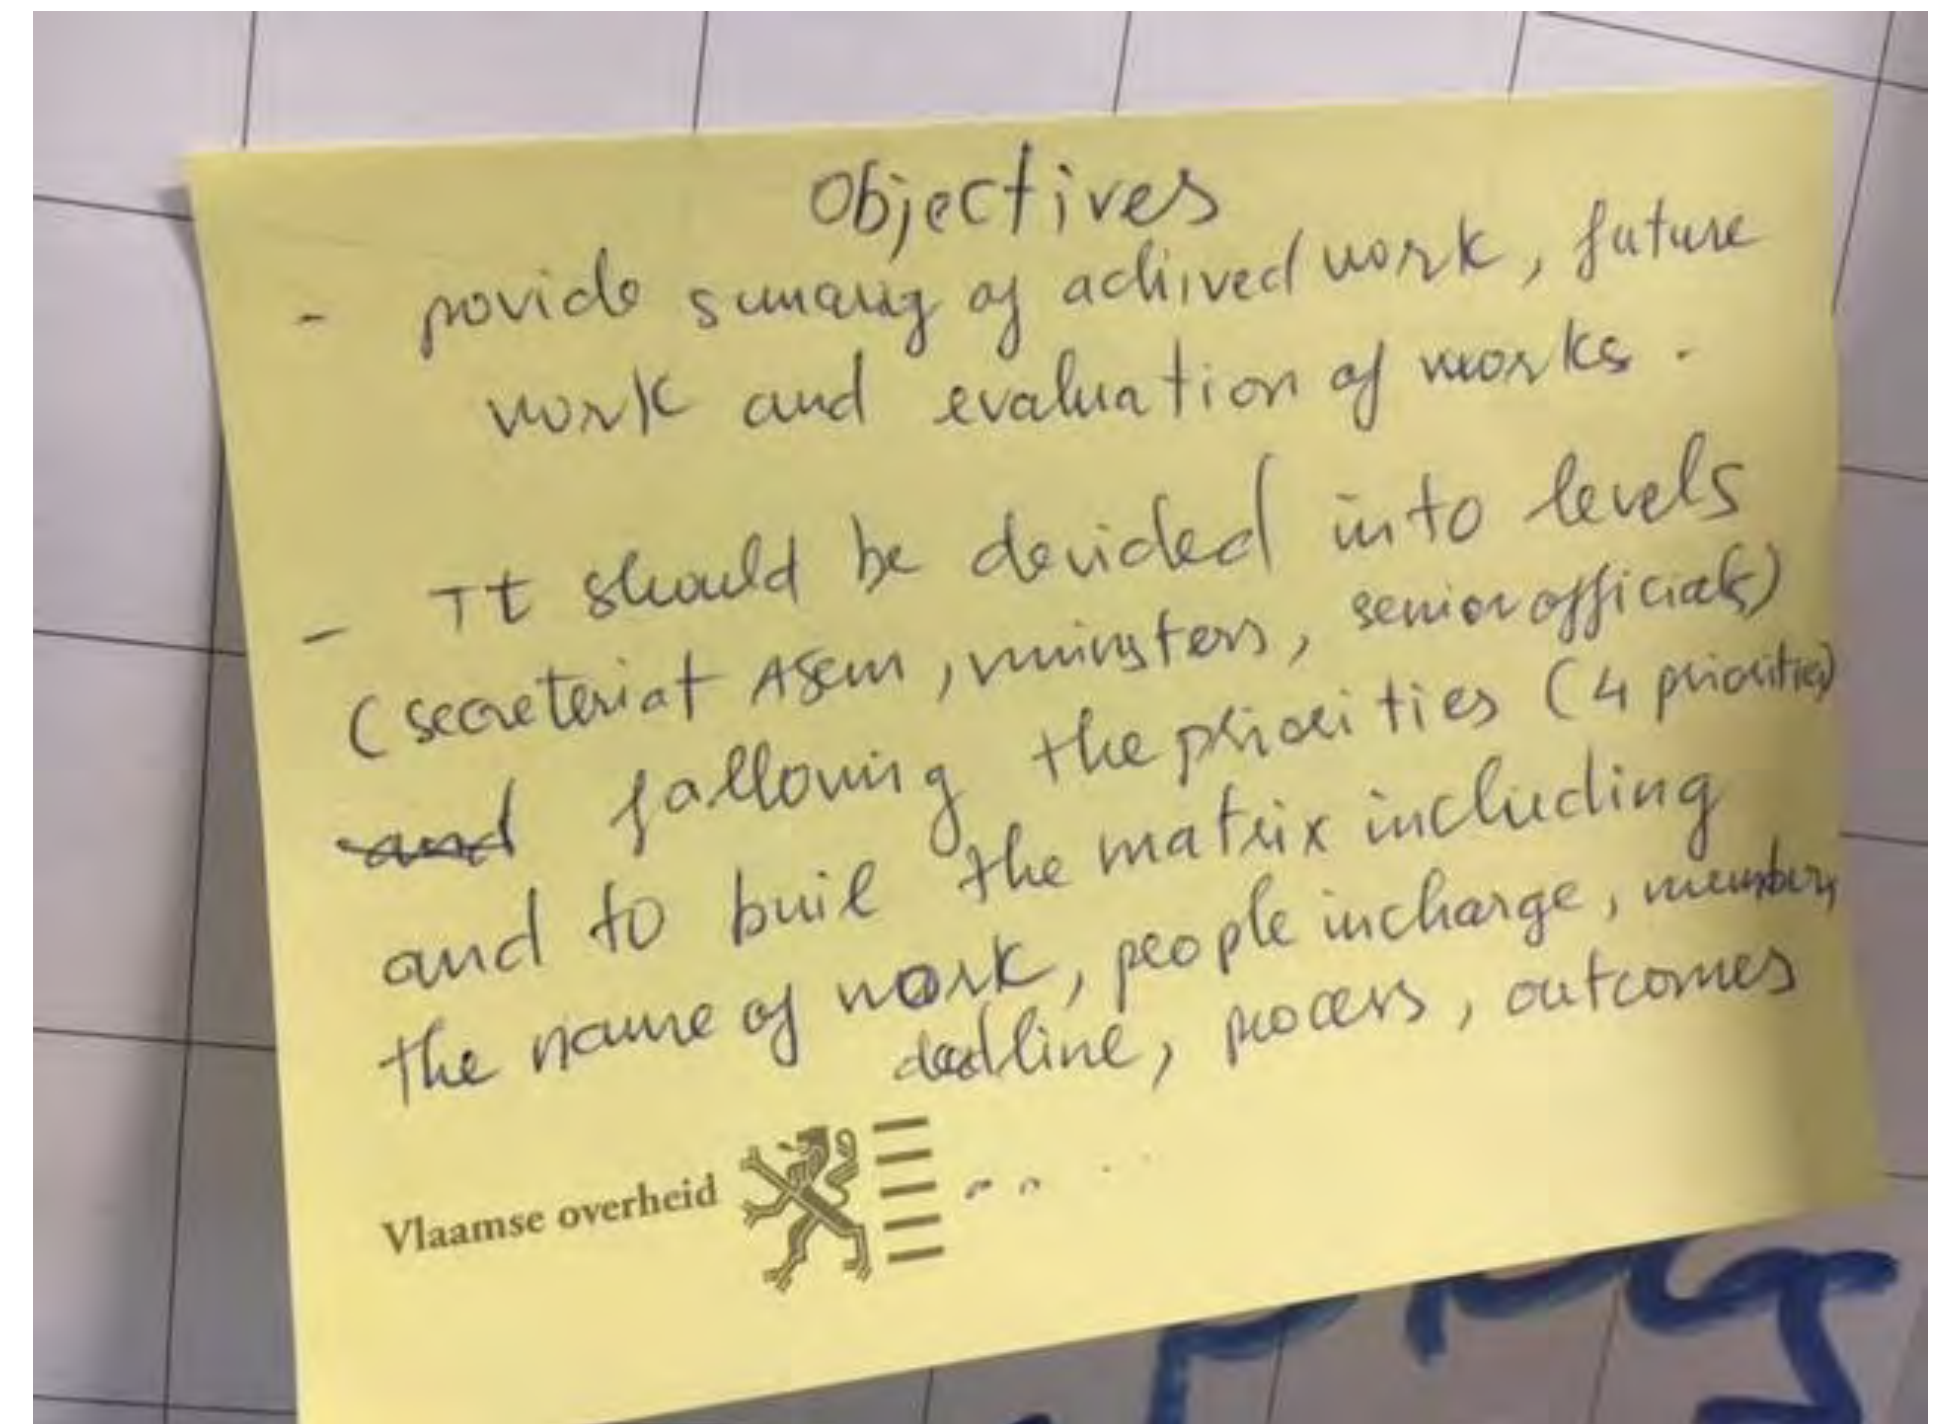 Objectives
- povide sumarig of achived work, future
work and evaluation of works.
- It should be devided into levels
(secreteriat Asem, ministers, senior officials)
and following the priorities (4 priorities)
and to buil the matrix including
the name of work, people incharge, members,
deadline, process, outcomes
Vlaamse overheid